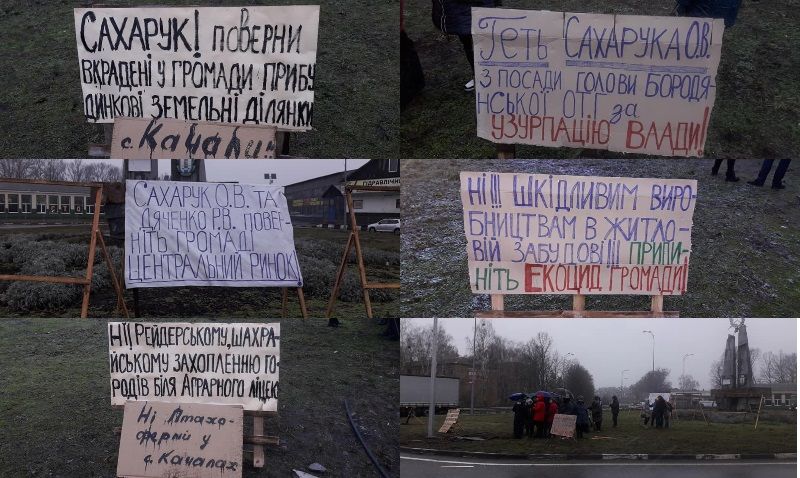 САХАРУК! ПОВЕРНИ
ВКРАДЕНІ У ГРОМАДИ ПРИБУ
ДИНКОВІ ЗЕМЕЛЬНІ ДІЛЯНКИ
с. Качали
Геть САХАРУКА О.В.
З ПОСАДИ ГОЛОВИ БОРОДЯ-
НСЬКОЇ ОТГ за
УЗУРПАЦІЮ ВЛАДИ!
САХАРУК О.В. ТА
ДЯЧЕНКО Р.В. ПОВЕР-
НІТЬ ГРОМАДІ
ЦЕНТРАЛЬНИЙ РИНОК!
ГІДРАВЛІЧН
НІ!!! ШКІДЛИВИМ ВИРО-
БНИЦТВАМ В ЖИТЛО-
ВІЙ ЗАБУДОВІ!!! ПРИПИ-
НІТЬ ЕКОЦИД ГРОМАДИ!
НІ! РЕЙДЕРСЬКОМУ, ШАХРА-
ЙСЬКОМУ ЗАХОПЛЕННЮ ГО-
РОДІВ БІЛЯ АГРАРНОГО ЛІЦЕЮ
Ні Птахо-
фермі у
с. Качалах